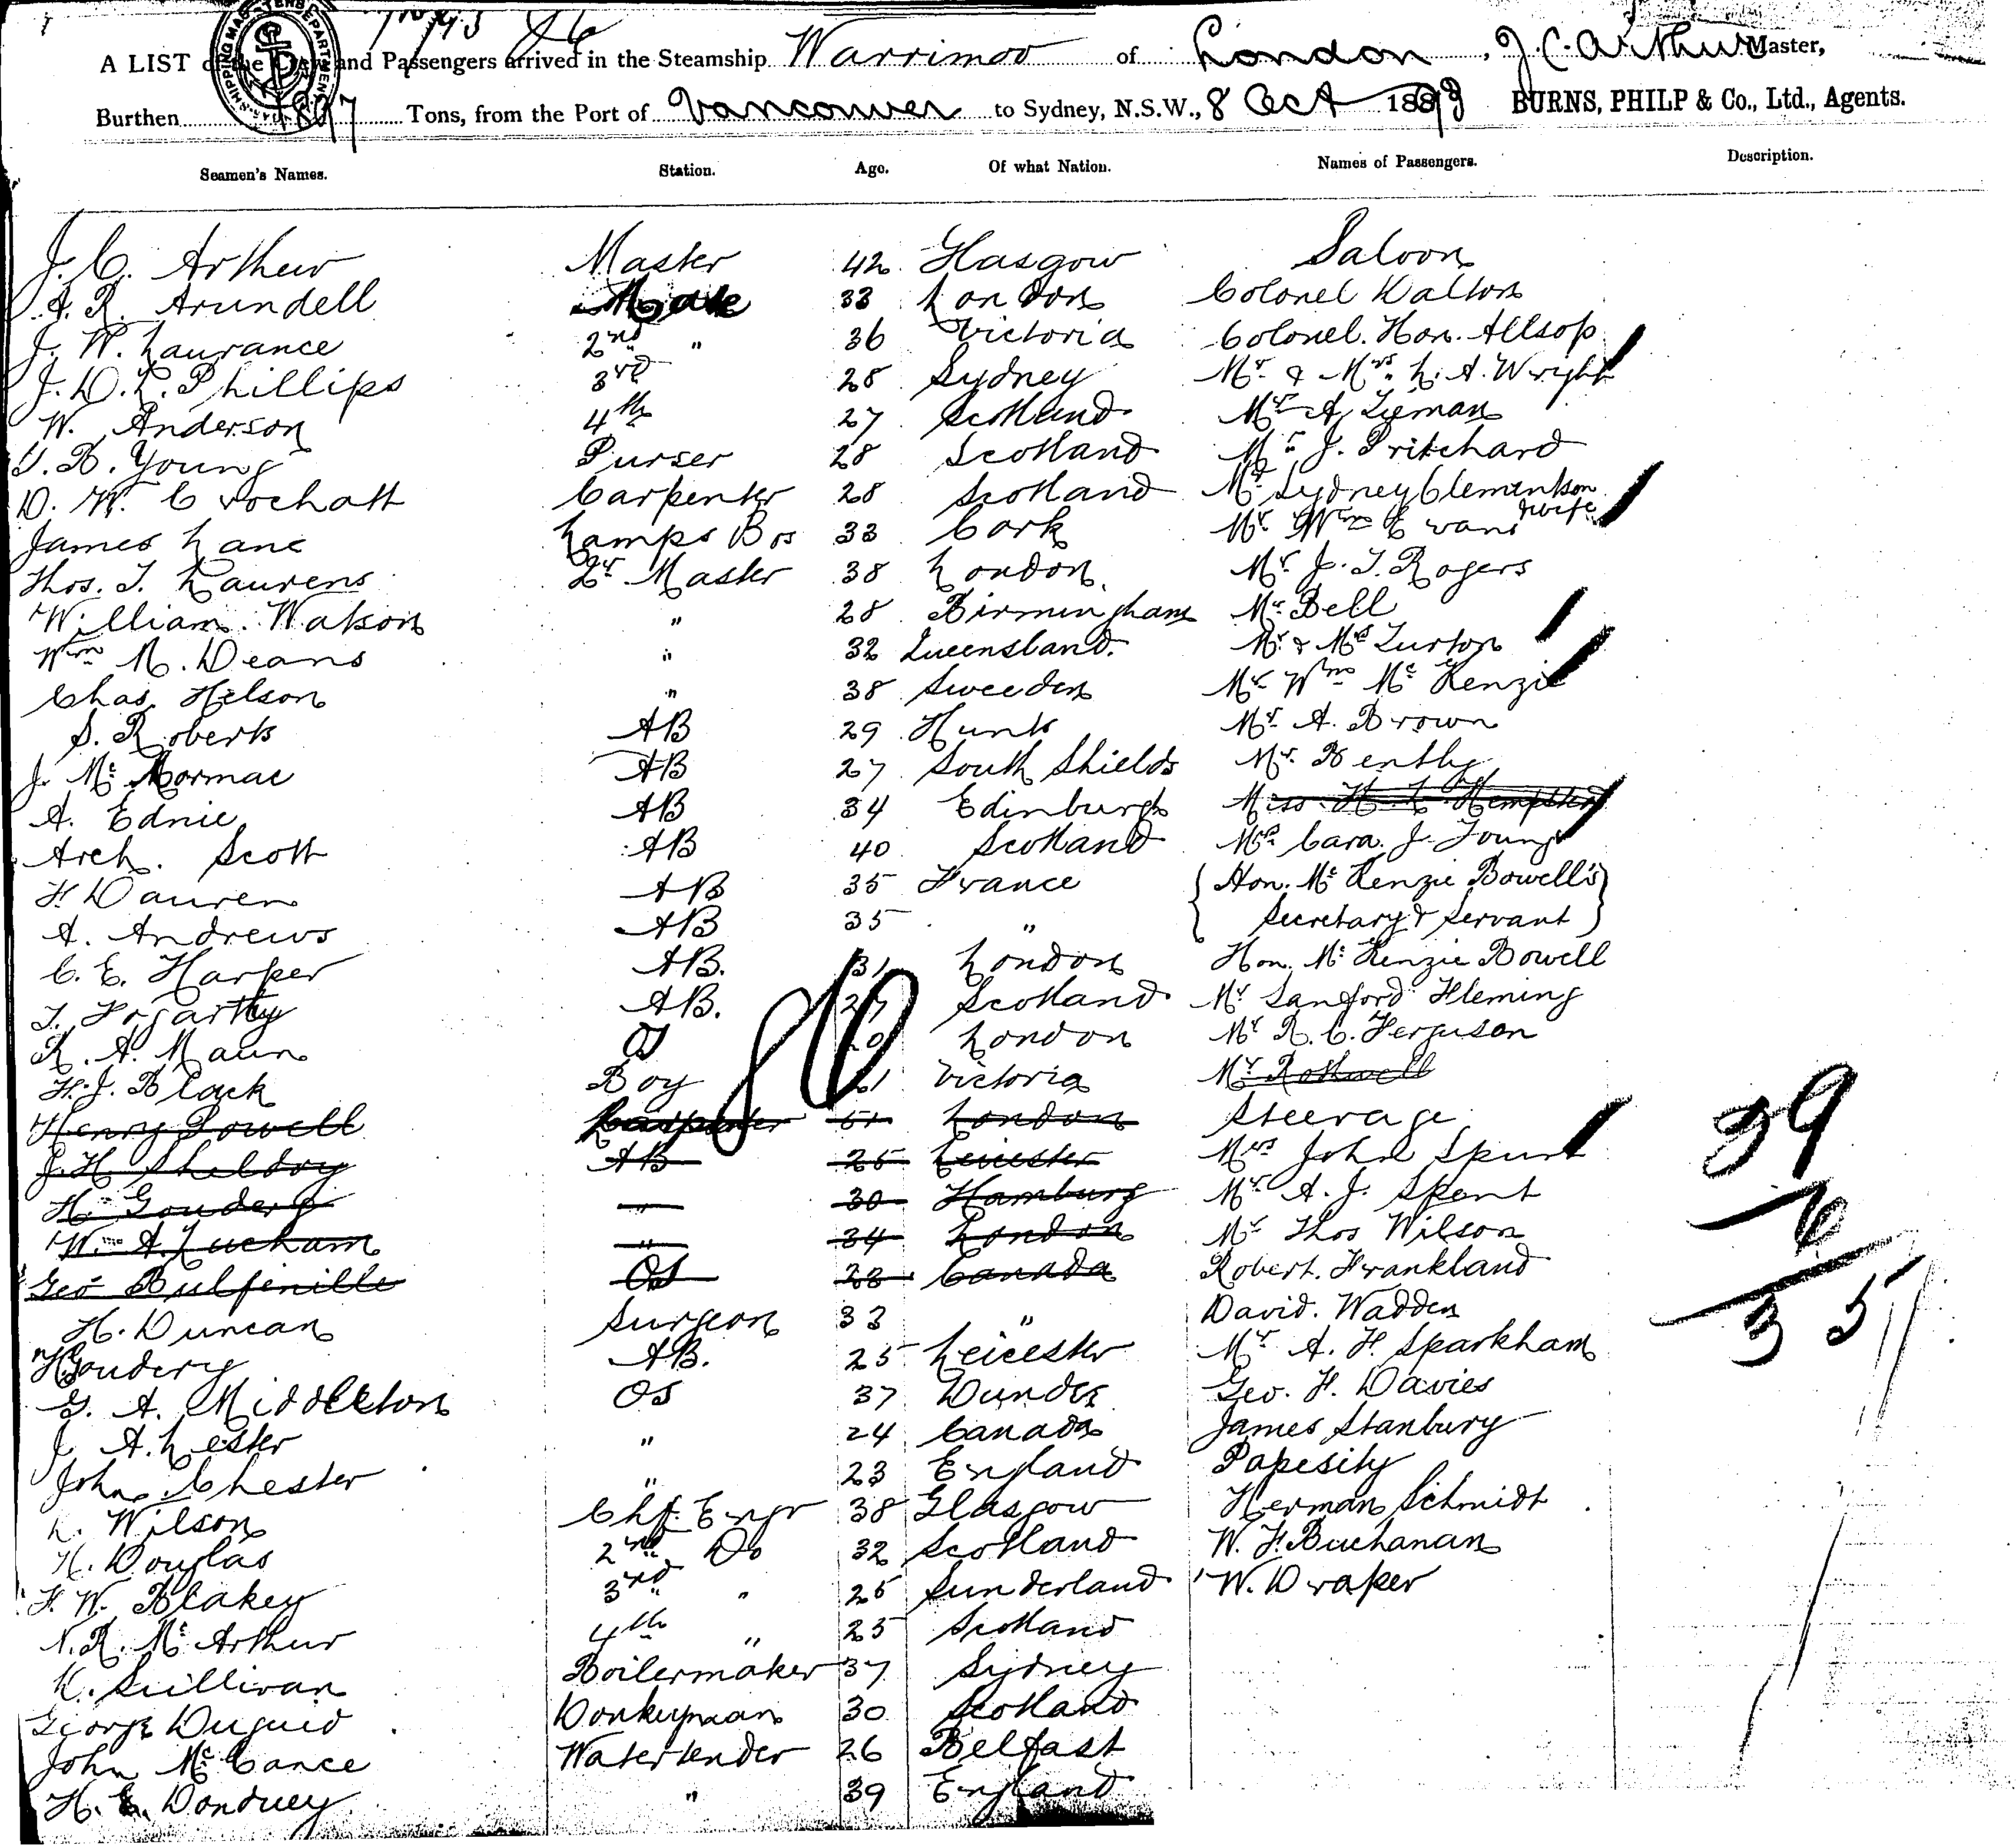 A LIST of the Crew and Passengers arrived in the Steamship Warrimoo of London, J. C. Arthur Master,
Burthen 1897 Tons, from the Port of Vancouver to Sydney, N.S.W., 8 Oct 1893 BURNS, PHILP & Co., Ltd., Agents.
Seamen's Names. Station. Age. Of what Nation. Names of Passengers. Description.
J. C. Arthur Master 42 Glasgow Saloon
A. R. Arundell Mate 33 London Colonel Dalton
J. W. Laurance 2nd " 36 Victoria Colonel. Hon. Allsop
J. D. L. Phillips 3rd 28 Sydney Mr. & Mrs. L. A. Wright
W. Anderson 4th 27 Scotland Mr A. Zieman
Young Purser 28 Scotland Mr J. Pritchard
D. W. Crochatt Carpenter 28 Scotland Mr Sydney Clementson
James Lane Lamps Bos 33 Cork Mr. Wm Evans & wife
Thos. T. Laurens Qr Master 38 London. Mr J. T. Rogers
William Watson " 28 Birmingham Mr. Bell
Wm M. Deans " 32 Queensland. Mr. & Mrs Turton
Chas. Nelson " 38 Sweeden Mr Wm McKenzie
S. Roberts AB 29 Hunts Mr A. Brown
J. Mc Mormac AB 27 South Shields Mr. Benthy
A. Ednie AB 34 Edinburgh Miss H. L.
Arch. Scott AB 40 Scotland Mrs Cara. J. Young
F. Dauren AB 35 France Hon. McKenzie Bowell's
A. Andrews AB 35 " Secretary & Servant
C. E. Harper AB. 31 London Hon. McKenzie Bowell
T. Fogartty AB. 27 Scotland Mr Sanford Fleming
R. A. Maun OS 20 London Mr R. C. Ferguson
H. J. Black Boy 21 Victoria Mr Rothwell
Henry Powell Carpenter 51 London Steerage
J. H. Sheldry AB 25 Leicester Mrs John Spurt
H. Gouderg " 30 Hamburg Mr A. J. Spent
Wm A. Lucham " 34 London Mr Thos Wilson
Geo Bulfinille OS 23 Canada Robert. Frankland
H. Duncan Surgeon 33 " David. Wadden
H Goudery AB. 25 Leicester Mr A. H. Sparkham
G. A. Middleton OS 37 Dundee Geo. F. Davies
J. A. Lester " 24 Canada James Stanbury
John Chester " 23 England Papesity
L. Wilson Chf. Engr 38 Glasgow Herman Schmidt
H. Douglas 2nd Do 32 Scotland W. F. Buchanan
F. W. Blakey 3rd " 25 Sunderland W. Draper
N. R. McArthur 4th " 25 Scotland
Sullivan Boilermaker 37 Sydney
George Duguid Donkeyman 30 Scotland
John McCance Watertender 26 Belfast
H. E. Donduey " 39 England
39
35